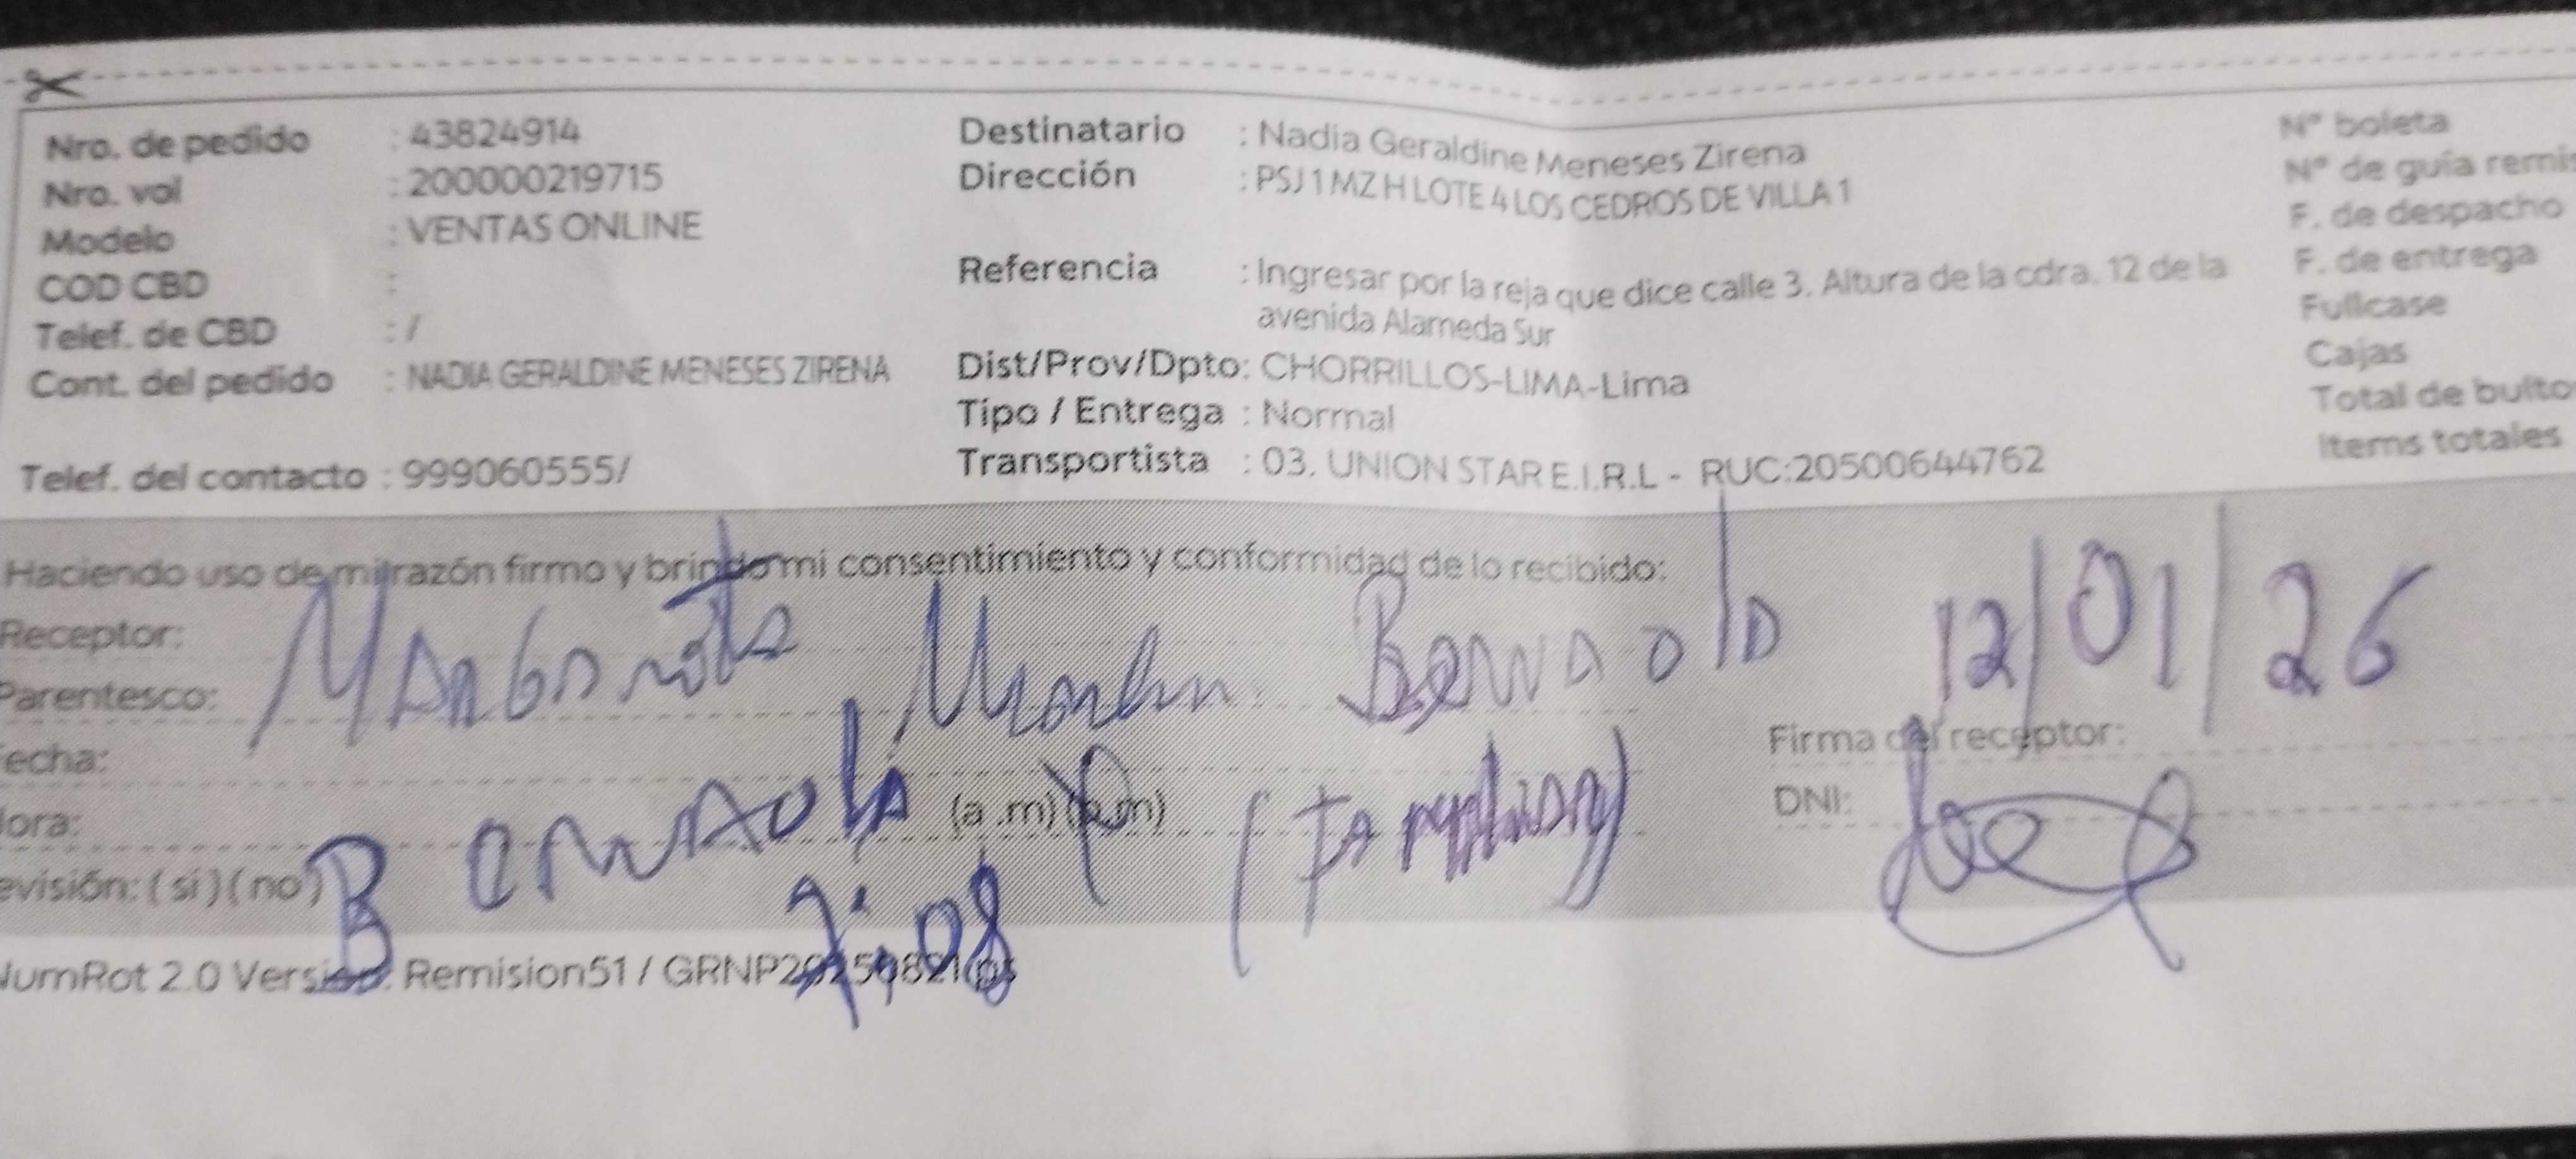 Nro. de pedido : 43824914
Nro. vol : 200000219715
Modelo : VENTAS ONLINE
COD CBD :
Telef. de CBD : /
Cont. del pedido : NADIA GERALDINE MENESES ZIRENA
Telef. del contacto : 999060555/
Destinatario : Nadia Geraldine Meneses Zirena
Dirección : PSJ 1 MZ H LOTE 4 LOS CEDROS DE VILLA 1
Referencia : Ingresar por la reja que dice calle 3. Altura de la cdra. 12 de la
avenida Alameda Sur
Dist/Prov/Dpto: CHORRILLOS-LIMA-Lima
Tipo / Entrega : Normal
Transportista : 03. UNION STAR E.I.R.L - RUC:20500644762
N° boleta
N° de guía remis
F. de despacho
F. de entrega
Fullcase
Cajas
Total de bulto
Items totales
Haciendo uso de mi razón firmo y brindo mi consentimiento y conformidad de lo recibido:
Receptor:
Parentesco:
12/01/26
echa:
Firma del receptor:
ora: (a.m) (p.m)
DNI:
evisión: ( si ) ( no )
NumRot 2.0 Version: Remision51 / GRNP20250821(ps